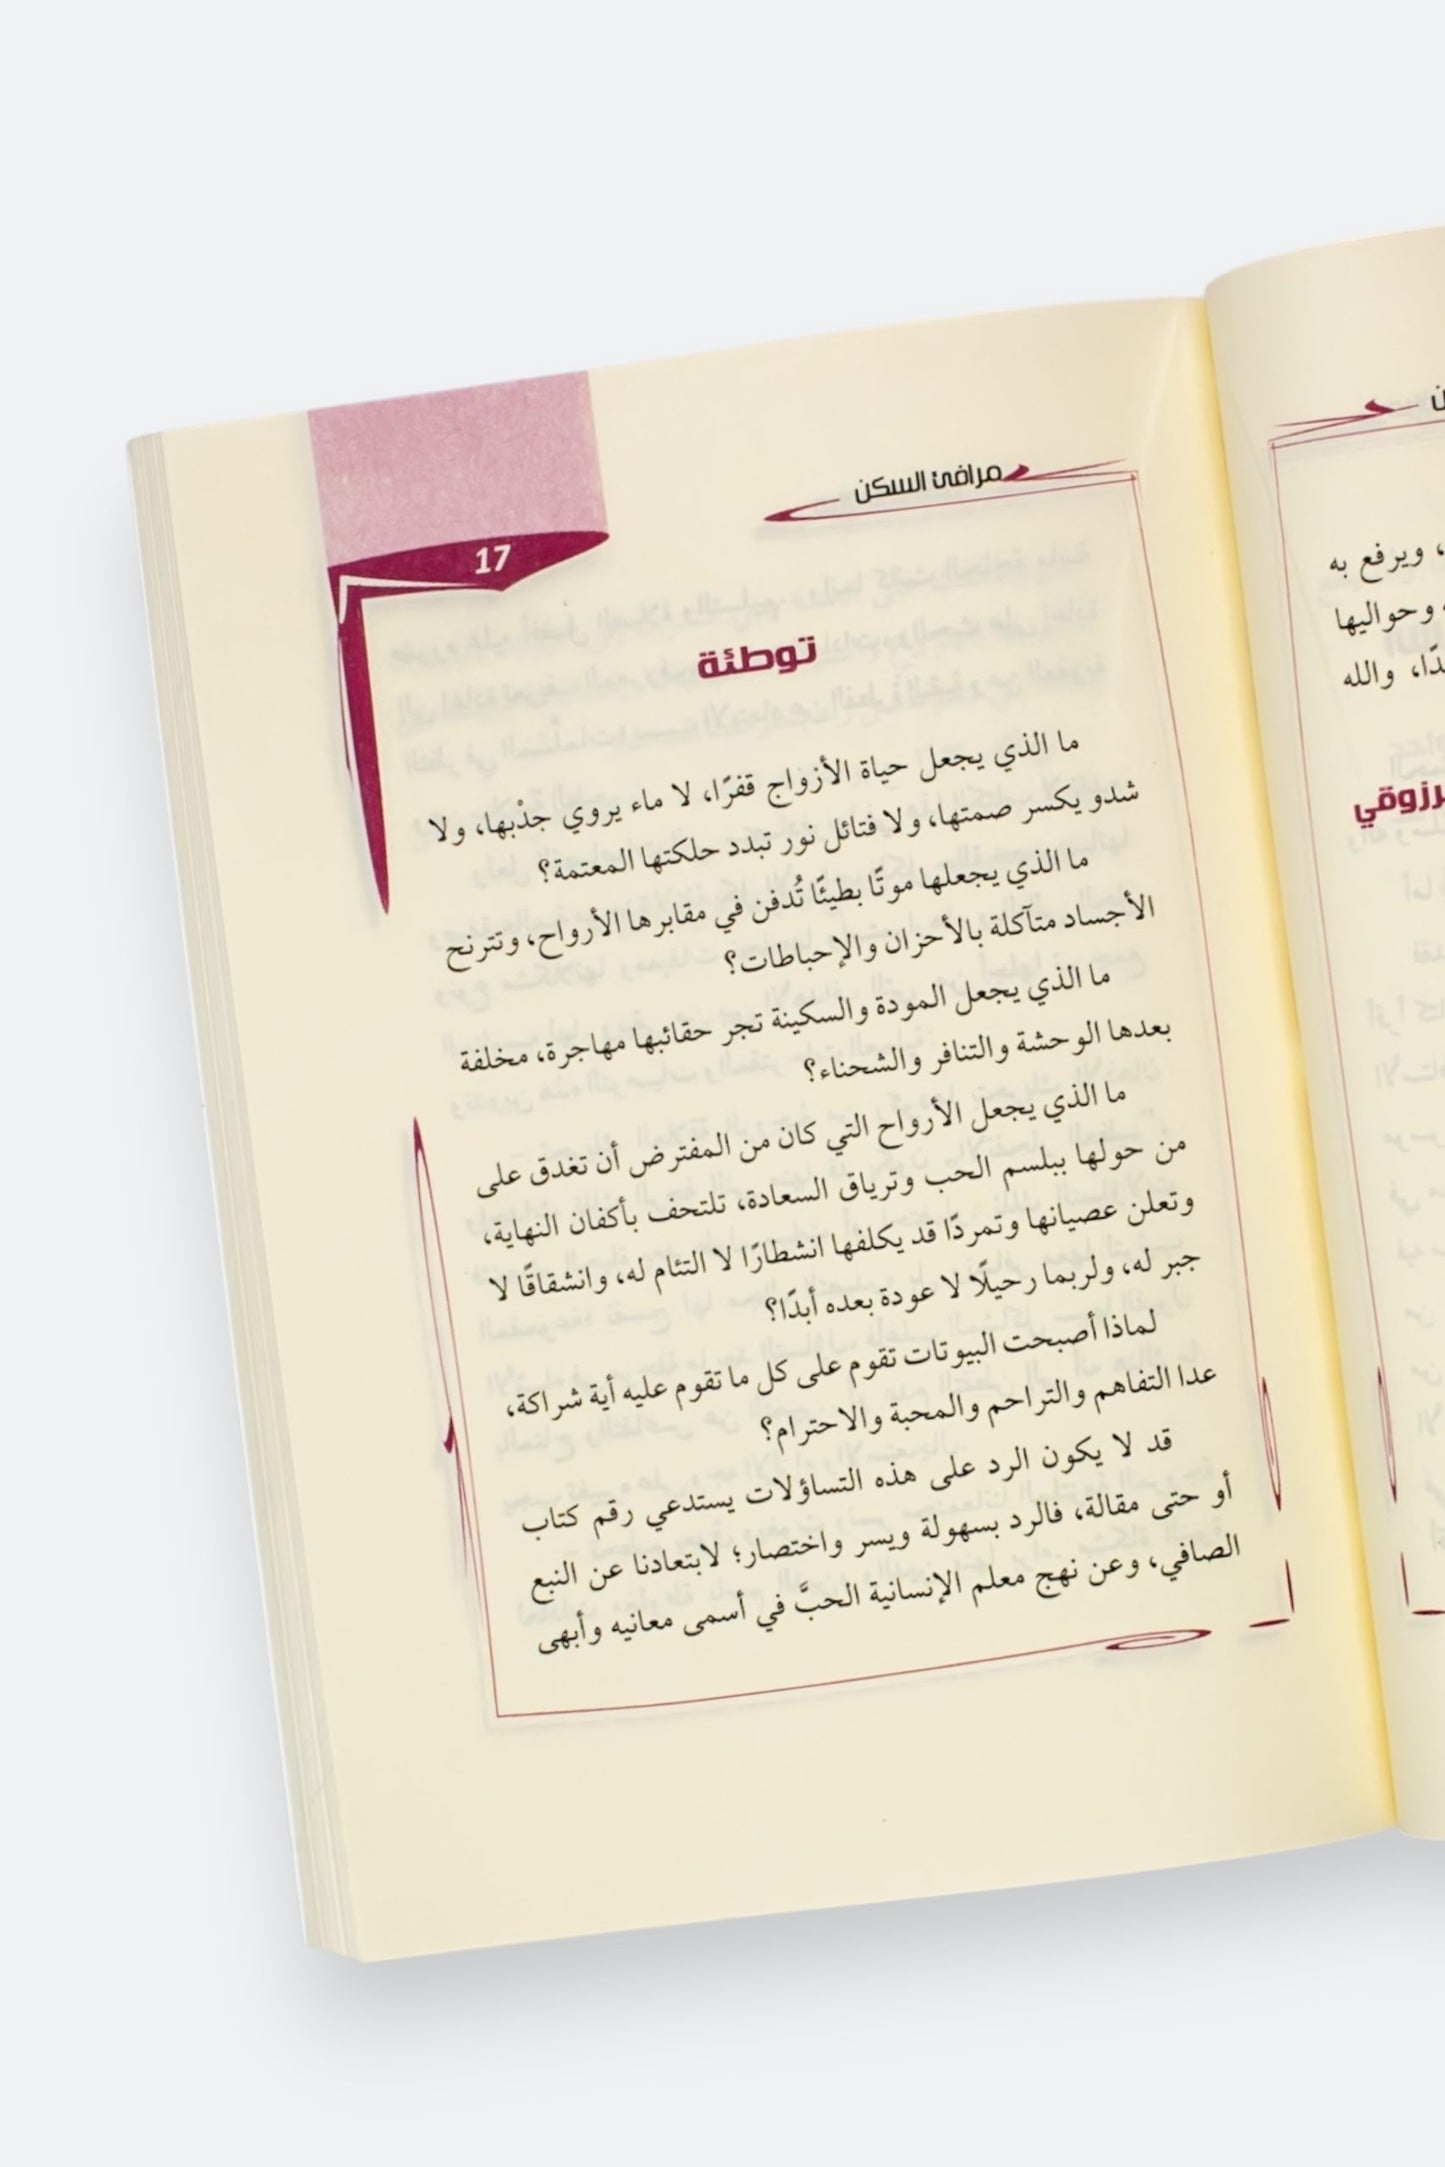 ويرفع به
وحواليها
والله
مرافئ السكن
17
توطئة
ما الذي يجعل حياة الأزواج قفرًا، لا ماء يروي جدْبها، ولا
شدو يكسر صمتها، ولا فتائل نور تبدد حلكتها المعتمة؟
ما الذي يجعلها موتًا بطيئًا تُدفن في مقابرها الأرواح، وتترنح
الأجساد متآكلة بالأحزان والإحباطات؟
ما الذي يجعل المودة والسكينة تجر حقائبها مهاجرة، مخلفة
بعدها الوحشة والتنافر والشحناء؟
ما الذي يجعل الأرواح التي كان من المفترض أن تغدق على
من حولها ببلسم الحب وترياق السعادة، تلتحف بأكفان النهاية،
وتعلن عصيانها وتمردًا قد يكلفها انشطارًا لا التئام له، وانشقاقًا لا
جبر له، ولربما رحيلًا لا عودة بعده أبدًا؟
لماذا أصبحت البيوتات تقوم على كل ما تقوم عليه أية شراكة،
عدا التفاهم والتراحم والمحبة والاحترام؟
قد لا يكون الرد على هذه التساؤلات يستدعي رقم كتاب
أو حتى مقالة، فالرد بسهولة ويسر واختصار؛ لابتعادنا عن النبع
الصافي، وعن نهج معلم الإنسانية الحبَّ في أسمى معانيه وأبهى